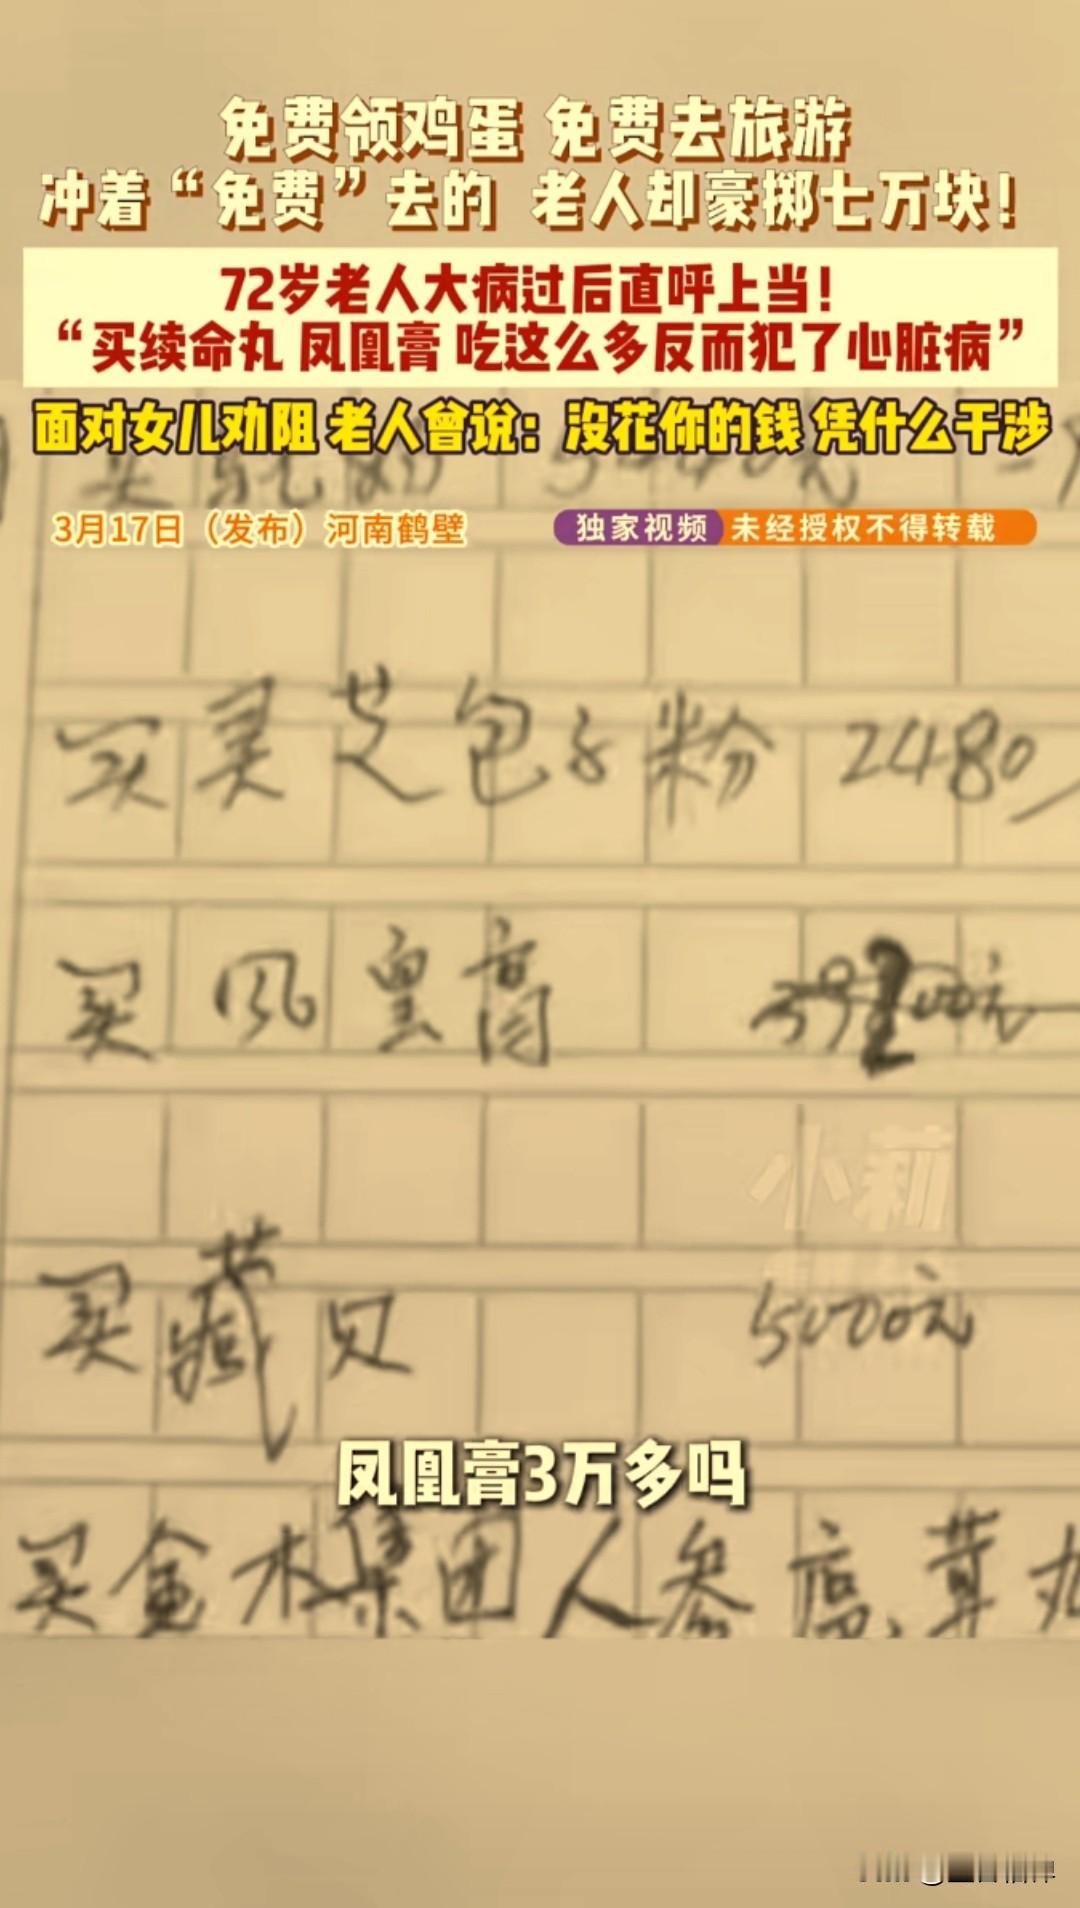 免费领鸡蛋 免费去旅游
冲着“免费”去的 老人却豪掷七万块！
72岁老人大病过后直呼上当！
“买续命丸 凤凰膏 吃这么多反而犯了心脏病”
面对女儿劝阻 老人曾说：没花你的钱 凭什么干涉
买驼奶 5
3月17日（发布）河南鹤壁
独家视频 未经授权不得转载
买灵芝包子粉 2480
买凤皇膏
小莉
买藏贝 5000元
凤凰膏3万多吗
买金木集团人参 茸丸